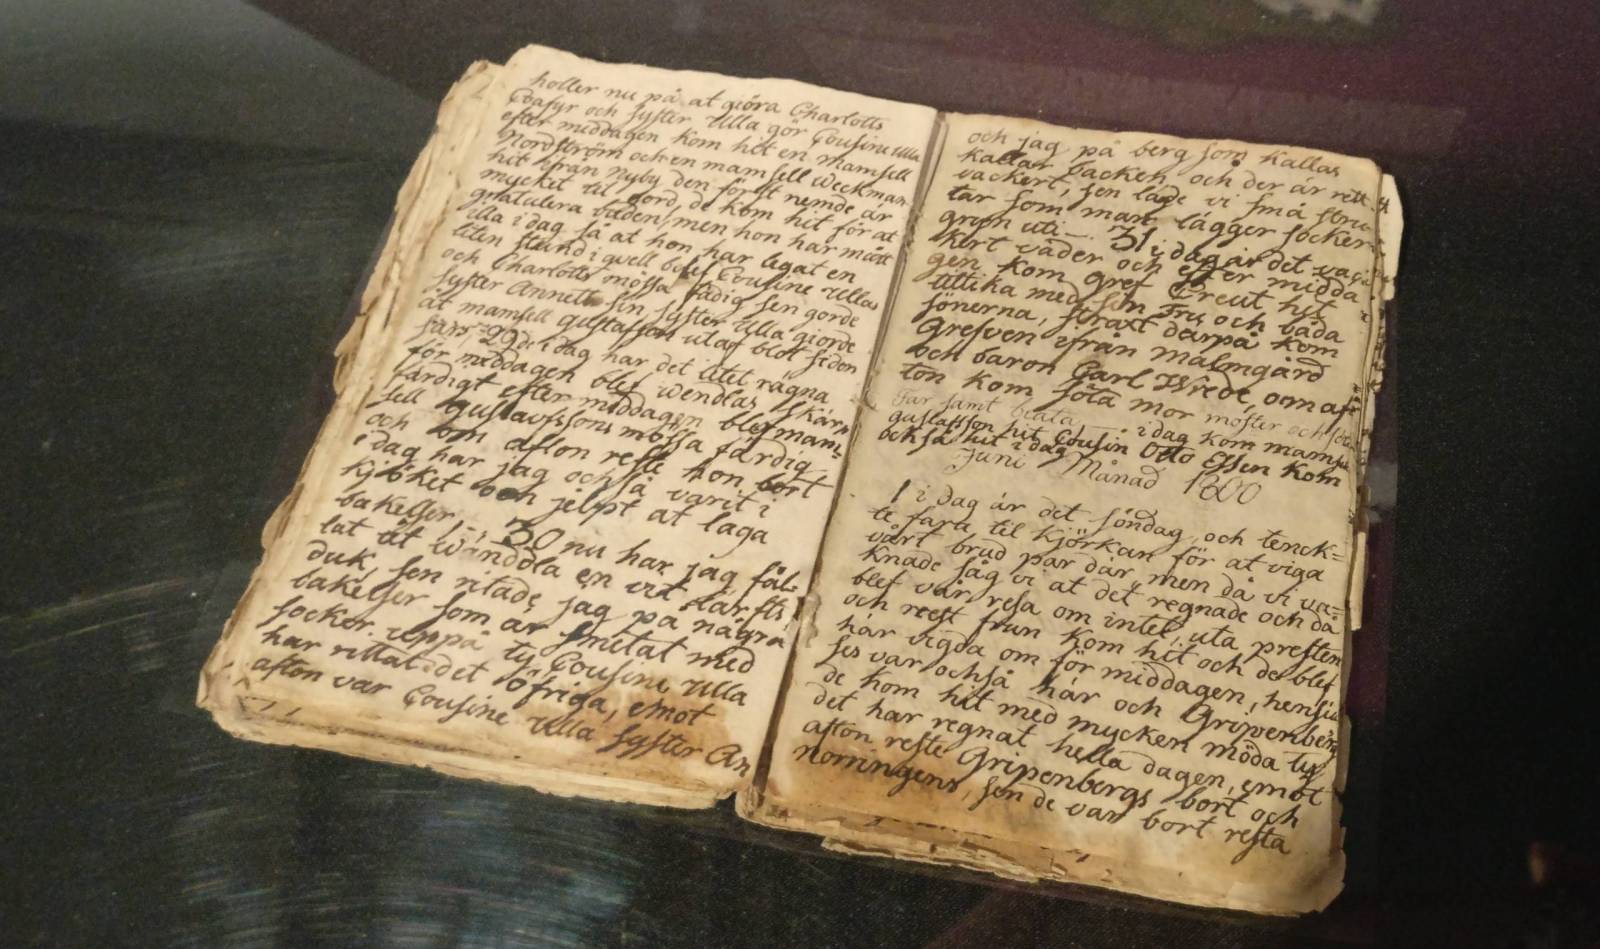 holler nu på at giöra Charlotts
Coafyr och syster Ulla gör Cousine Ulla
efter middagen kom hit en mamsell
Nordström och en mamsell Weckman
hit ifrån nyby den först nemde är
mycket til gord, de kom hit för at
gratulera båden, men hon har mått
illa i dag så at hon har legat en
liten stund i qvell blef Cousine Ullas
och Charlotts mössa fädig sen gorde
syster Annette sin syster Ulla giorde
åt mamsell gustafson utaf blot siden
fårs, 29 de i dag har det litet rägna
för middagen blef Wendlas skärn
färdigt efter middagen blef mam=
sell Gustavfssons mössa färdig
och om afton reste hon bort
i dag har jag också varit i
kjöket och jelpt at laga
bakelser 30 nu har jag fål=
lat åt Wanddla en vit tärfts
duk, sen ritade jag på några
bakelser som är smetat med
socker uppå ty Cousine Ulla
har rittat det öfriga, emot
afton var Cousine Ulla syster An
och jag på berg som kallas
kallar backen och der är rett
vackert, sen lade vi små stru
tar som man lägger socker
gryn uti 31 i dag är det vac
kert väder och efter midda
gen kom gref Creut hit
tillika med sin Fru och båda
sönerna, straxt därpå kom
Grefven ifrån malmgård
och baron Carl Wrede, om af
ton kom söta mor moster och
far samt beata i dag kom mamsel
gustafson hit Cousin Otto Essen kom
också hit i dag
Juni Månad 1800
1 i dag är det söndag och tenck=
te fara til kjörkan för at viga
vårt brud par där, men då vi va=
knade såg vi at det regnade och då
blef vår resa om intet, uta presten
och reest frun kom hit och de blef
här vigda om för middagen, hensiu
ses var också här och Gripenberg
de kom hit med mycken möda ty
det har regnat hella dagen, emot
afton reste Gripenbergs bort och
norringens, sen de var bort resta